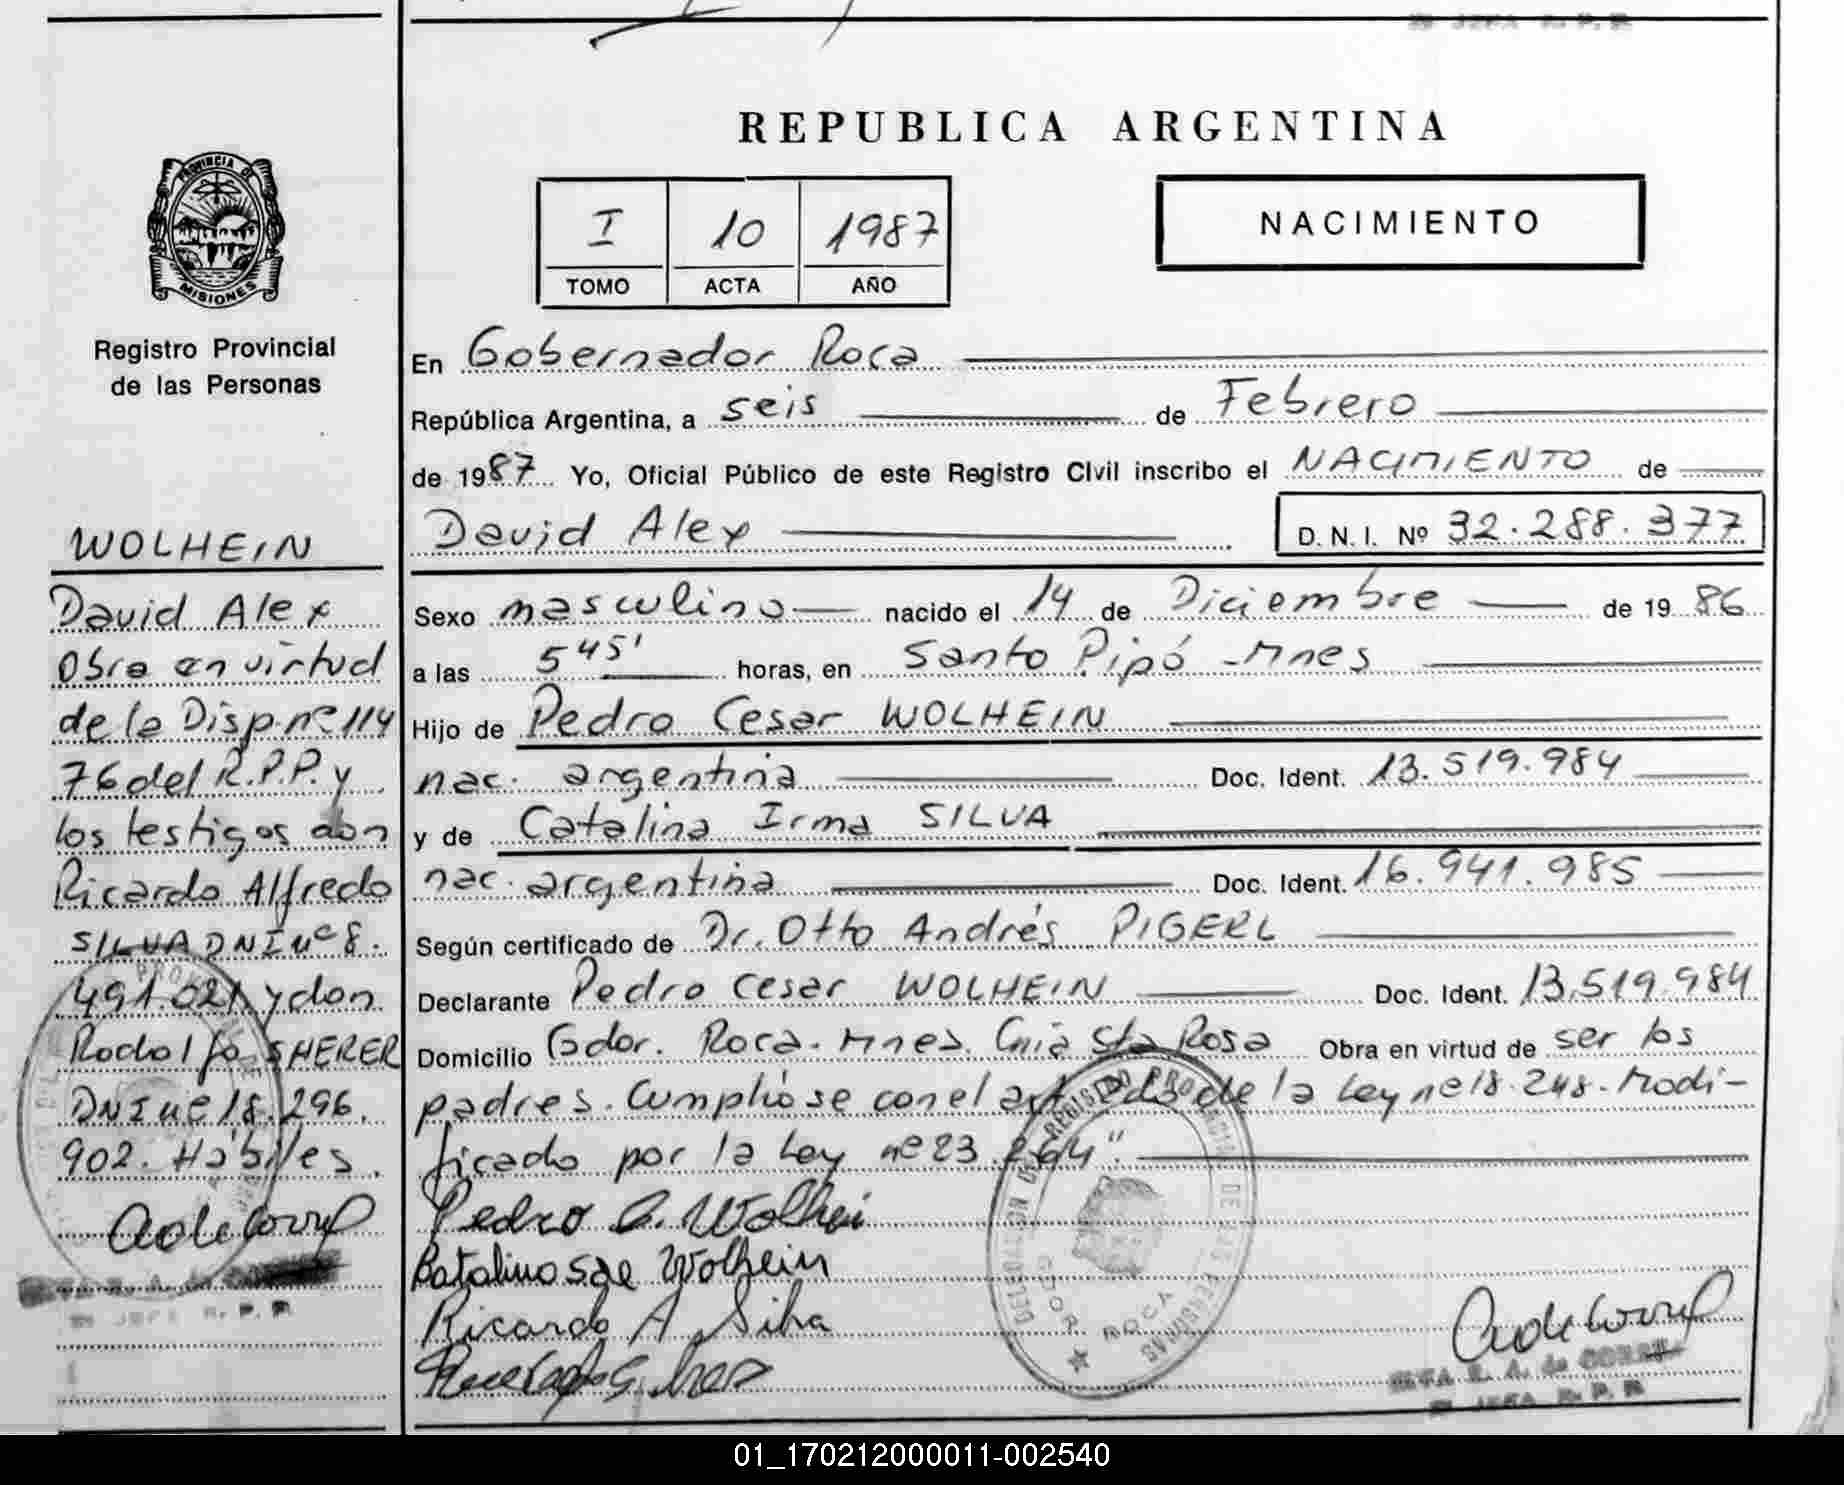 REPUBLICA ARGENTINA
PROVINCIA DE
MISIONES
Registro Provincial
de las Personas
I 10 1987
TOMO ACTA AÑO
NACIMIENTO
En Gobernador Roca
República Argentina, a seis de Febrero
de 1987 Yo, Oficial Público de este Registro Civil inscribo el NACIMIENTO de
David Alex D. N. I. Nº 32.288.377
Sexo masculino nacido el 14 de Diciembre de 1986
a las 5 45' horas, en Santo Pipó - Mnes
Hijo de Pedro Cesar WOLHEIN
nac. argentina Doc. Ident. 13.519.984
y de Catalina Irma SILVA
nac. argentina Doc. Ident. 16.941.985
Según certificado de Dr. Otto Andrés PIGERL
Declarante Pedro Cesar WOLHEIN Doc. Ident. 13.519.984
Domicilio Gdor. Roca. Mnes. Cnia Sta Rosa Obra en virtud de ser los
padres. Cumplióse con el art de la Ley nº 18.248. Modi-
ficado por la Ley nº 23.264"
Pedro C. Wolhei
Catalina S de Wolhein
Ricardo A Silva
WOLHEIN
David Alex
Obra en virtud
de la Disp. nº 114
76 del R.P.P. y
los testigos don
Ricardo Alfredo
SILVA DNI nº 8.
491.021 y don
Rodolfo SHERER
DNI nº 18.296.
902. Hábiles.
REGISTRO PROVINCIAL DE LAS PERSONAS
DELEGACION
GDOR ROCA
JEFA R. P. P.
01_170212000011-002540